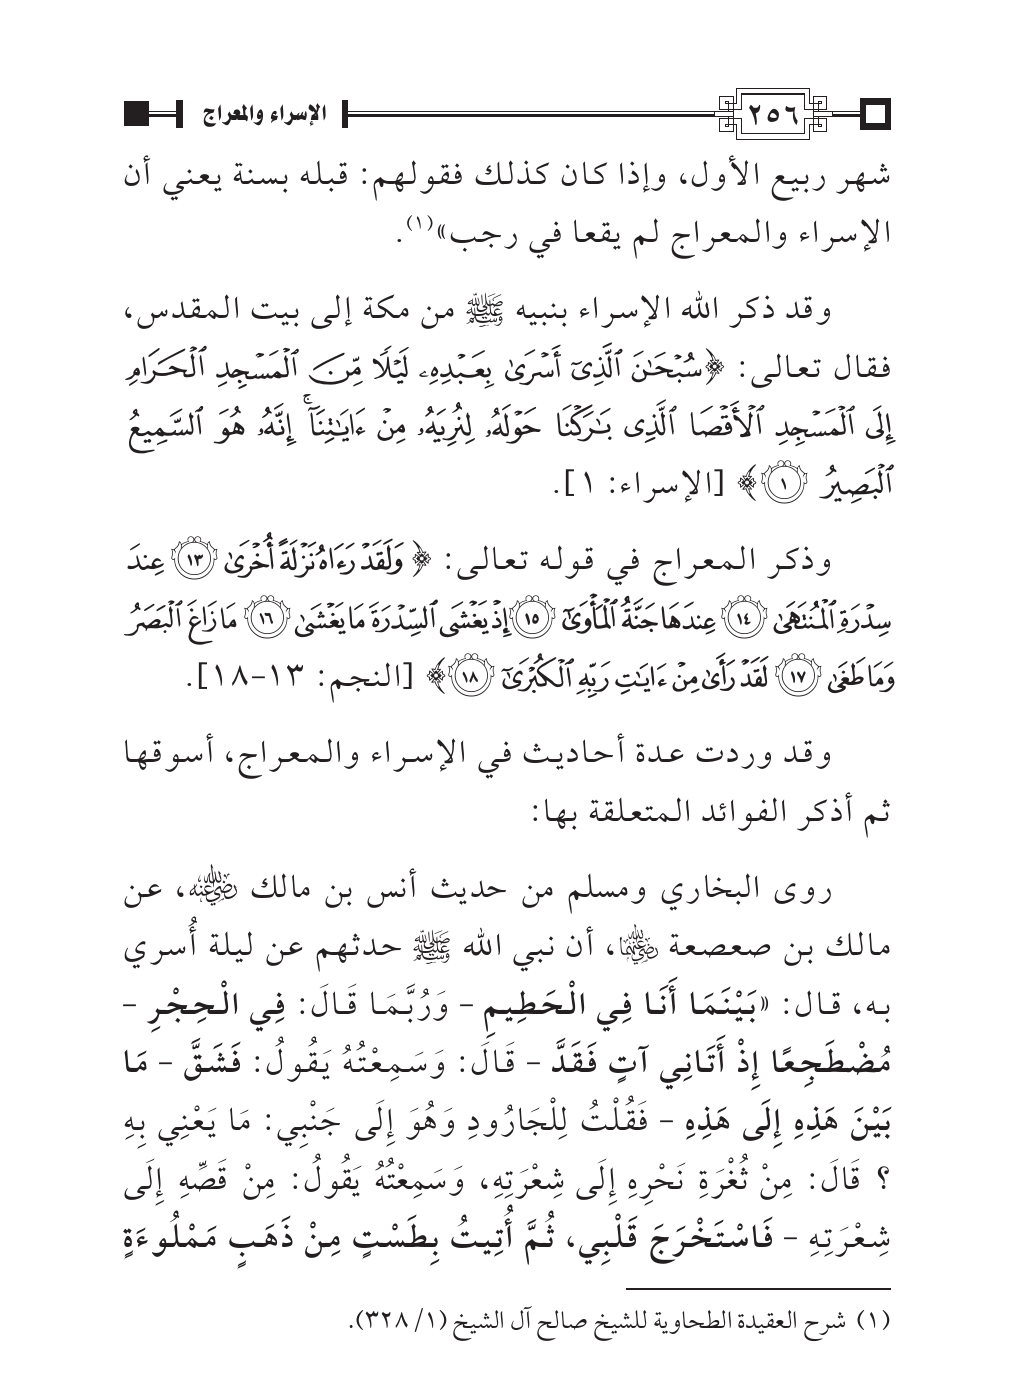 ٢٥٦ الإسراء والمعراج
شهر ربيع الأول، وإذا كان كذلك فقولهم: قبله بسنة يعني أن
الإسراء والمعراج لم يقعا في رجب»(١).
وقد ذكر الله الإسراء بنبيه ﷺ من مكة إلى بيت المقدس،
فقال تعالى: ﴿سُبْحَٰنَ ٱلَّذِىٓ أَسْرَىٰ بِعَبْدِهِۦ لَيْلًا مِّنَ ٱلْمَسْجِدِ ٱلْحَرَامِ
إِلَى ٱلْمَسْجِدِ ٱلْأَقْصَا ٱلَّذِى بَٰرَكْنَا حَوْلَهُۥ لِنُرِيَهُۥ مِنْ ءَايَٰتِنَآ ۚ إِنَّهُۥ هُوَ ٱلسَّمِيعُ
ٱلْبَصِيرُ ١﴾ [الإسراء: ١].
وذكر المعراج في قوله تعالى: ﴿وَلَقَدْ رَءَاهُ نَزْلَةً أُخْرَىٰ ١٣ عِندَ
سِدْرَةِ ٱلْمُنتَهَىٰ ١٤ عِندَهَا جَنَّةُ ٱلْمَأْوَىٰٓ ١٥ إِذْ يَغْشَى ٱلسِّدْرَةَ مَا يَغْشَىٰ ١٦ مَا زَاغَ ٱلْبَصَرُ
وَمَا طَغَىٰ ١٧ لَقَدْ رَأَىٰ مِنْ ءَايَٰتِ رَبِّهِ ٱلْكُبْرَىٰٓ ١٨﴾ [النجم: ١٣-١٨].
وقد وردت عدة أحاديث في الإسراء والمعراج، أسوقها
ثم أذكر الفوائد المتعلقة بها:
روى البخاري ومسلم من حديث أنس بن مالك رضي الله عنه، عن
مالك بن صعصعة رضي الله عنهما، أن نبي الله ﷺ حدثهم عن ليلة أُسري
به، قال: «بَيْنَمَا أَنَا فِي الْحَطِيمِ – وَرُبَّمَا قَالَ: فِي الْحِجْرِ –
مُضْطَجِعًا إِذْ أَتَانِي آتٍ فَقَدَّ – قَالَ: وَسَمِعْتُهُ يَقُولُ: فَشَقَّ – مَا
بَيْنَ هَذِهِ إِلَى هَذِهِ – فَقُلْتُ لِلْجَارُودِ وَهُوَ إِلَى جَنْبِي: مَا يَعْنِي بِهِ
؟ قَالَ: مِنْ ثُغْرَةِ نَحْرِهِ إِلَى شِعْرَتِهِ، وَسَمِعْتُهُ يَقُولُ: مِنْ قَصِّهِ إِلَى
شِعْرَتِهِ – فَاسْتَخْرَجَ قَلْبِي، ثُمَّ أُتِيتُ بِطَسْتٍ مِنْ ذَهَبٍ مَمْلُوءَةٍ
(١) شرح العقيدة الطحاوية للشيخ صالح آل الشيخ (١/ ٣٢٨).